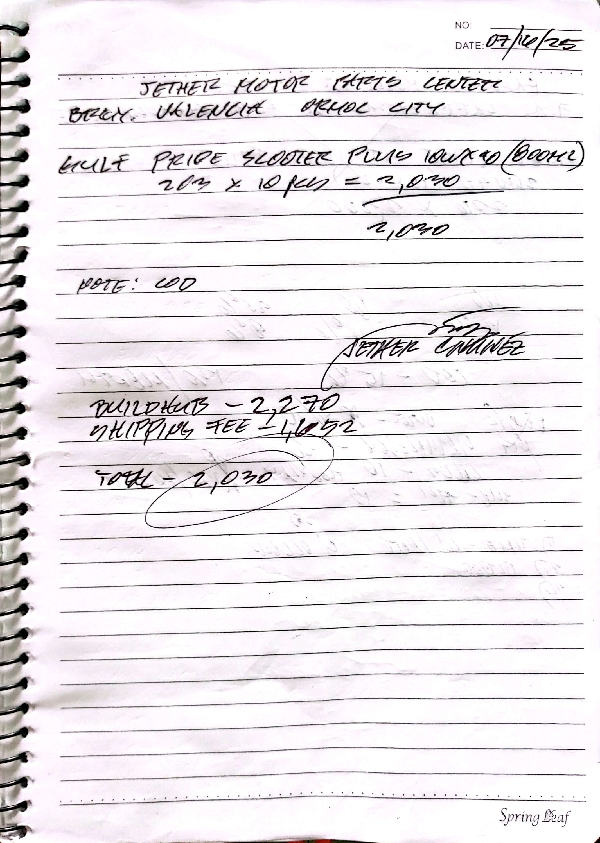 NO:
DATE: 07/16/25
JETHER MOTOR PARTS CENTER
BRGY. VALENCIA ORMOC CITY
GULF PRIDE SCOOTER PLUS 10WX40 (800ML)
203 X 10 PCS = 2,030
2,030
NOTE: COD
JETHER
BUILDHUB - 2,270
SHIPPING FEE -
TOTAL - 2,030
Spring Leaf